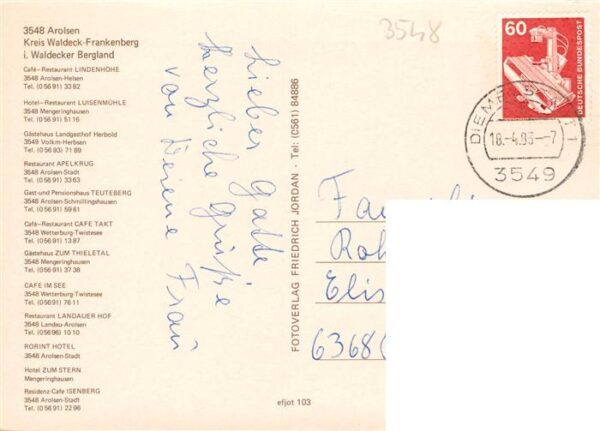 3548 Arolsen
Kreis Waldeck-Frankenberg
i. Waldecker Bergland
Café–Restaurant LINDENHÖHE
3548 Arolsen-Helsen
Tel. (0 56 91) 33 82
Hotel–Restaurant LUISENMÜHLE
3548 Mengeringhausen
Tel. (0 56 91) 51 16
Gästehaus Landgasthof Herbold
3549 Volkm-Herbsen
Tel. (0 56 93) 71 89
Restaurant APELKRUG
3548 Arolsen-Stadt
Tel. (0 56 91) 33 63
Gast-und Pensionshaus TEUTEBERG
3548 Arolsen-Schmillingshausen
Tel. (0 56 91) 59 61
Café–Restaurant CAFE TAKT
3548 Wetterburg-Twistesee
Tel. (0 56 91) 13 87
Gästehaus ZUM THIELETAL
3548 Mengeringhausen
Tel. (0 56 91) 37 38
CAFE IM SEE
3548 Wetterburg-Twistesee
Tel. (0 56 91) 76 11
Restaurant LANDAUER HOF
3548 Landau-Arolsen
Tel. (0 56 96) 10 10
RORINT HOTEL
3548 Arolsen-Stadt
Hotel ZUM STERN
Mengeringhausen
Residenz-Cafe ISENBERG
3548 Arolsen-Stadt
Tel. (0 56 91) 22 96
Lieber Gatte
herzliche Grüße
von Deiner Frau
FOTOVERLAG FRIEDRICH JORDAN · Tel: (0561) 84886
efjot 103
3548
60
DEUTSCHE BUNDESPOST
18.-4.83–-7
3549
Fa
Roh
Elis
6368